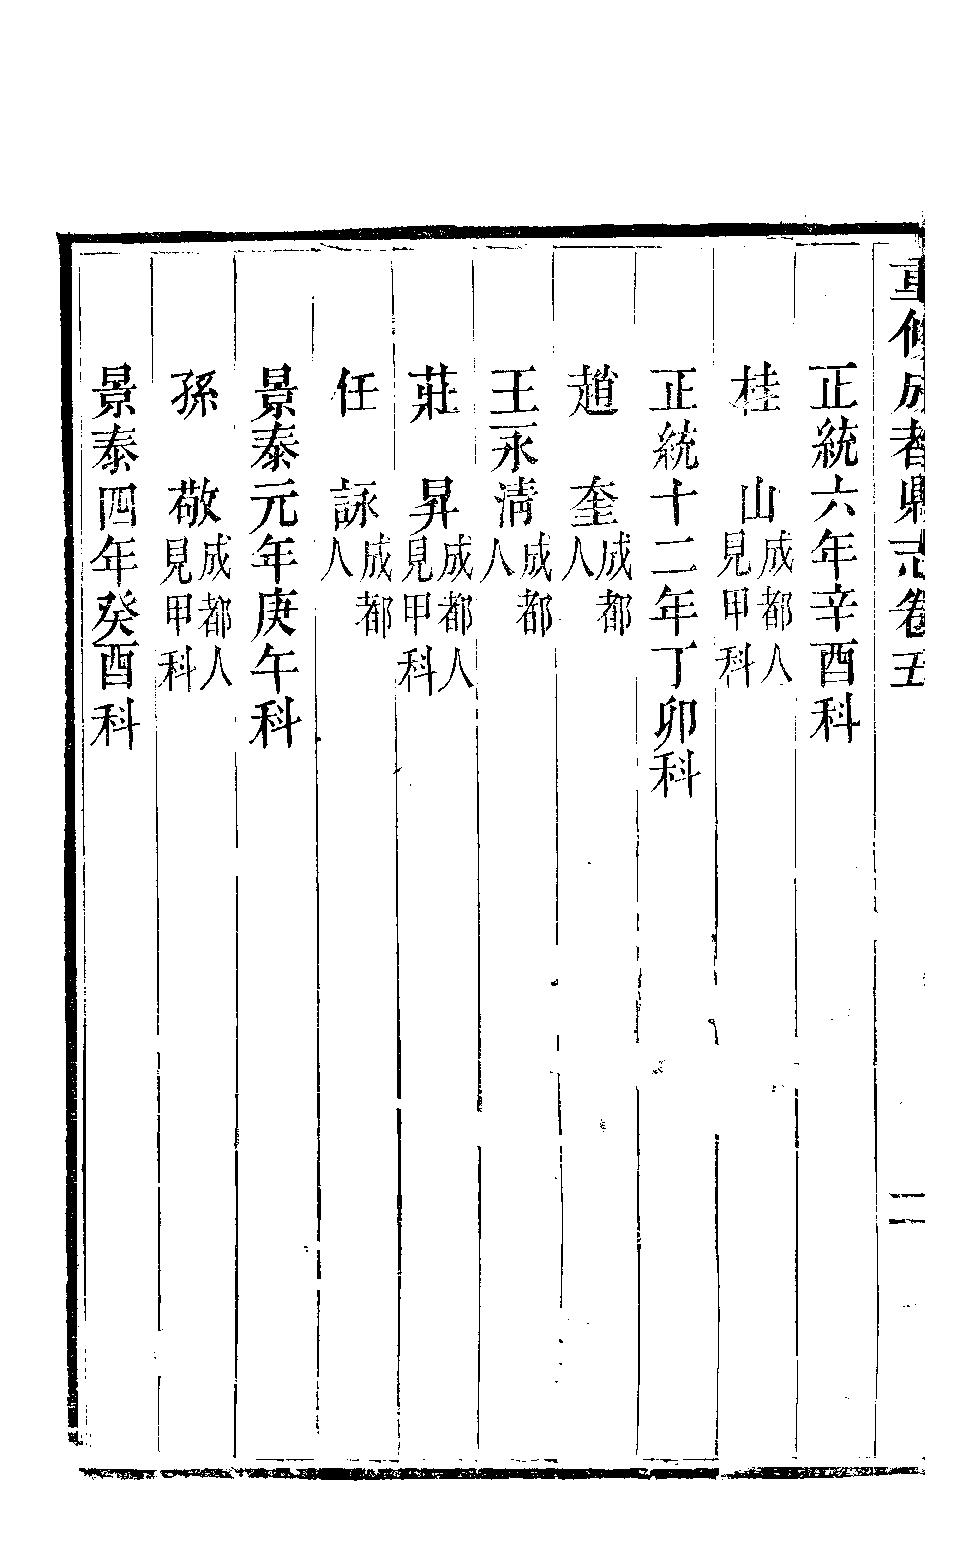 重修成都縣志卷五
二
正統六年辛酉科
桂山成都人見甲科
正統十二年丁卯科
趙奎成都人
王永清成都人
莊昇成都人見甲科
任詠成都人
景泰元年庚午科
孫敬成都人見甲科
景泰四年癸酉科